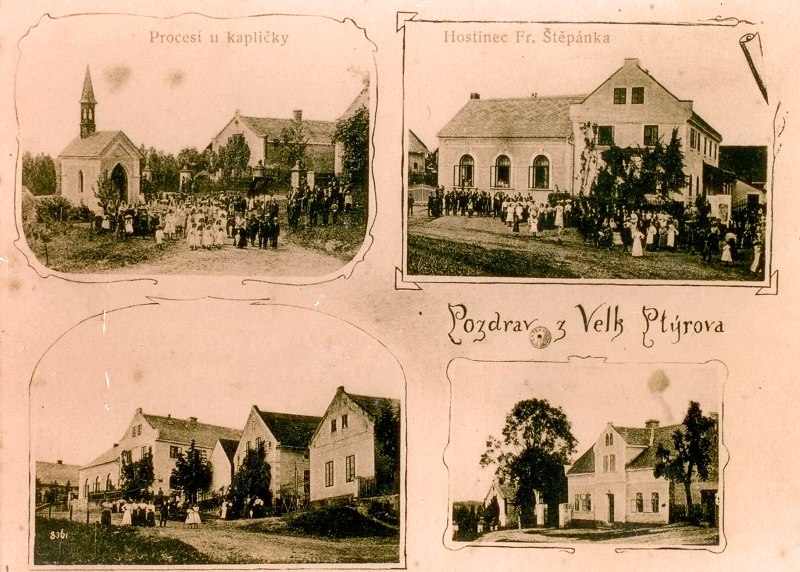 Procesí u kapličky
Hostinec Fr. Štěpánka
Pozdrav z Velk Ptýrova